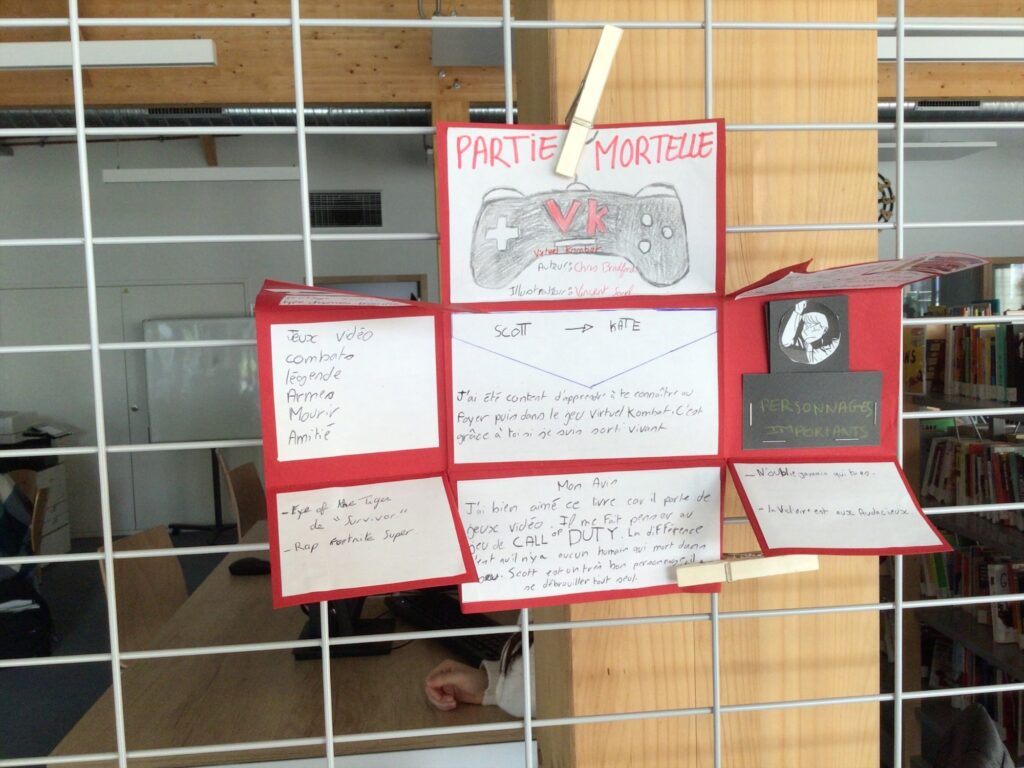 PARTIE MORTELLE
Vk
Virtuel Kombat
Auteur: Chris Bradford
Illustrateur: Vincent
Jeux vidéo
combats
légende
Armes
Mourir
Amitié
SCOTT → KATE
J'ai été content d'apprendre à te connaître au
foyer puis dans le jeu Virtuel Kombat. C'est
grâce à toi si je suis sorti vivant
PERSONNAGES
IMPORTANTS
- Eye of the Tiger
de "Survivor"
- Rap Fortnite Super
Mon Avis
J'ai bien aimé ce livre car il parle de
jeux vidéo. Il me fait penser au
jeu de CALL of DUTY. La différence
c'est qu'il n'y a aucun humain qui meurt dans
jeu. Scott est un très bon personnage, il
se débrouiller tout seul.
- N'oublie jamais qui tu es.
- la Victoire est aux Audacieux